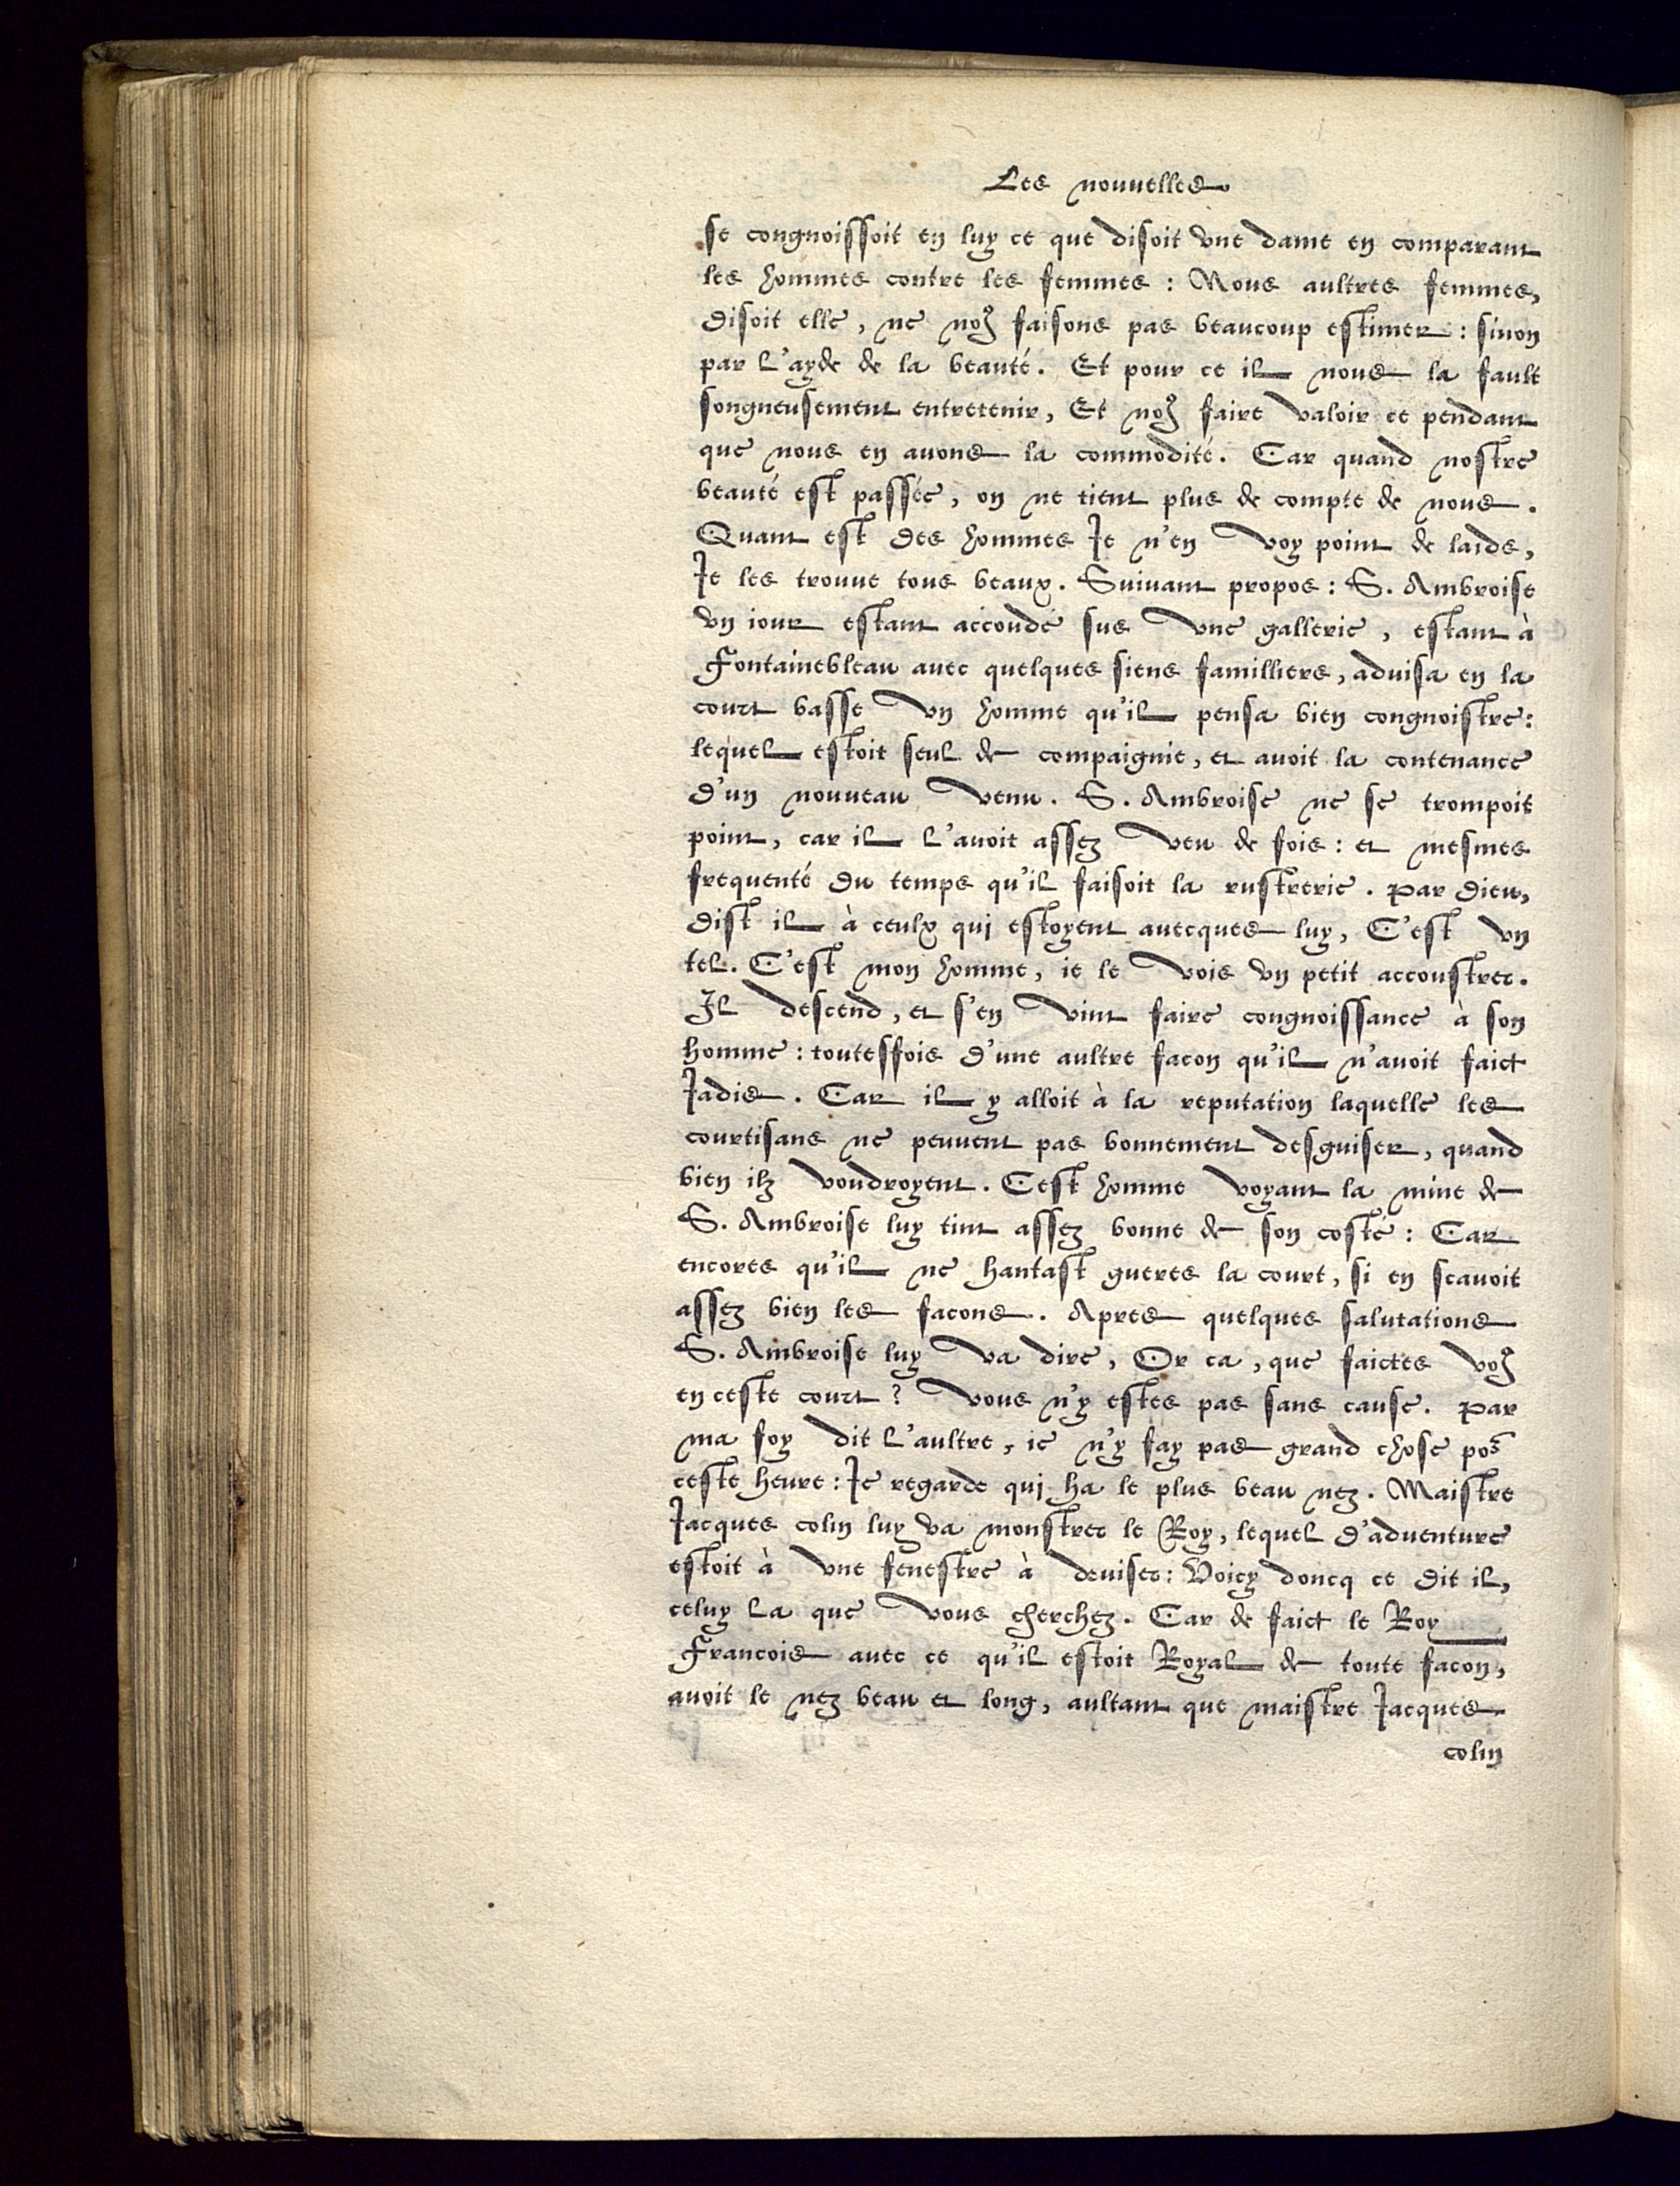 Les nouuelles
se congnoissoit en luy ce que disoit vne dame en comparant
les hommes contre les femmes : Nous aultres femmes,
disoit elle, ne noꝰ faisons pas beaucoup estimer : sinon
par l'ayde de la beauté. Et pour ce il nous la fault
songneusement entretenir, Et noꝰ faire valoir ce pendant
que nous en auons la commodité. Car quand nostre
beauté est passée, on ne tient plus de compte de nous.
Quant est des hommes Je n'en voy point de laids,
Je les trouue tous beaux. Suiuant propos : S. Ambroise
vn iour estant accoudé sus vne gallerie, estant à
Fontainebleau auec quelques siens familliers, aduisa en la
court basse vn homme qu'il pensa bien congnoistre :
lequel estoit seul de compaignie, et auoit la contenance
d'un nouueau venu. S. Ambroise ne se trompoit
point, car il l'auoit assez veu de fois : et mesmes
frequenté du temps qu'il faisoit la rustrerie. Par dieu,
dist il à ceulx qui estoyent auecques luy, C'est vn
tel. C'est mon homme, ie le vois vn petit accoustrer.
Il descend, et s'en vint faire congnoissance à son
homme : toutesfois d'une aultre facon qu'il n'auoit faict
Jadis. Car il y alloit à la reputation laquelle les
courtisans ne peuuent pas bonnement desguiser, quand
bien ilz voudroyent. Cest homme voyant la mine de
S. Ambroise luy tint assez bonne de son costé : Car
encores qu'il ne hantast gueres la court, si en scauoit
assez bien les facons. Apres quelques salutations
S. Ambroise luy va dire, Or ca, que faictes voꝰ
en ceste court ? vous n'y estes pas sans cause. Par
ma foy dit l'aultre, ie n'y fay pas grand chose poᷣ
ceste heure : Je regarde qui ha le plus beau nez. Maistre
Jacques colin luy va monstrer le Roy, lequel d'aduenture
estoit à vne fenestre à deuiser : Voicy doncq ce dit il,
celuy la que vous cherchez. Car de faict le Roy
Francois auec ce qu'il estoit Royal de toute facon,
auoit le nez beau et long, aultant que maistre Jacques
colin